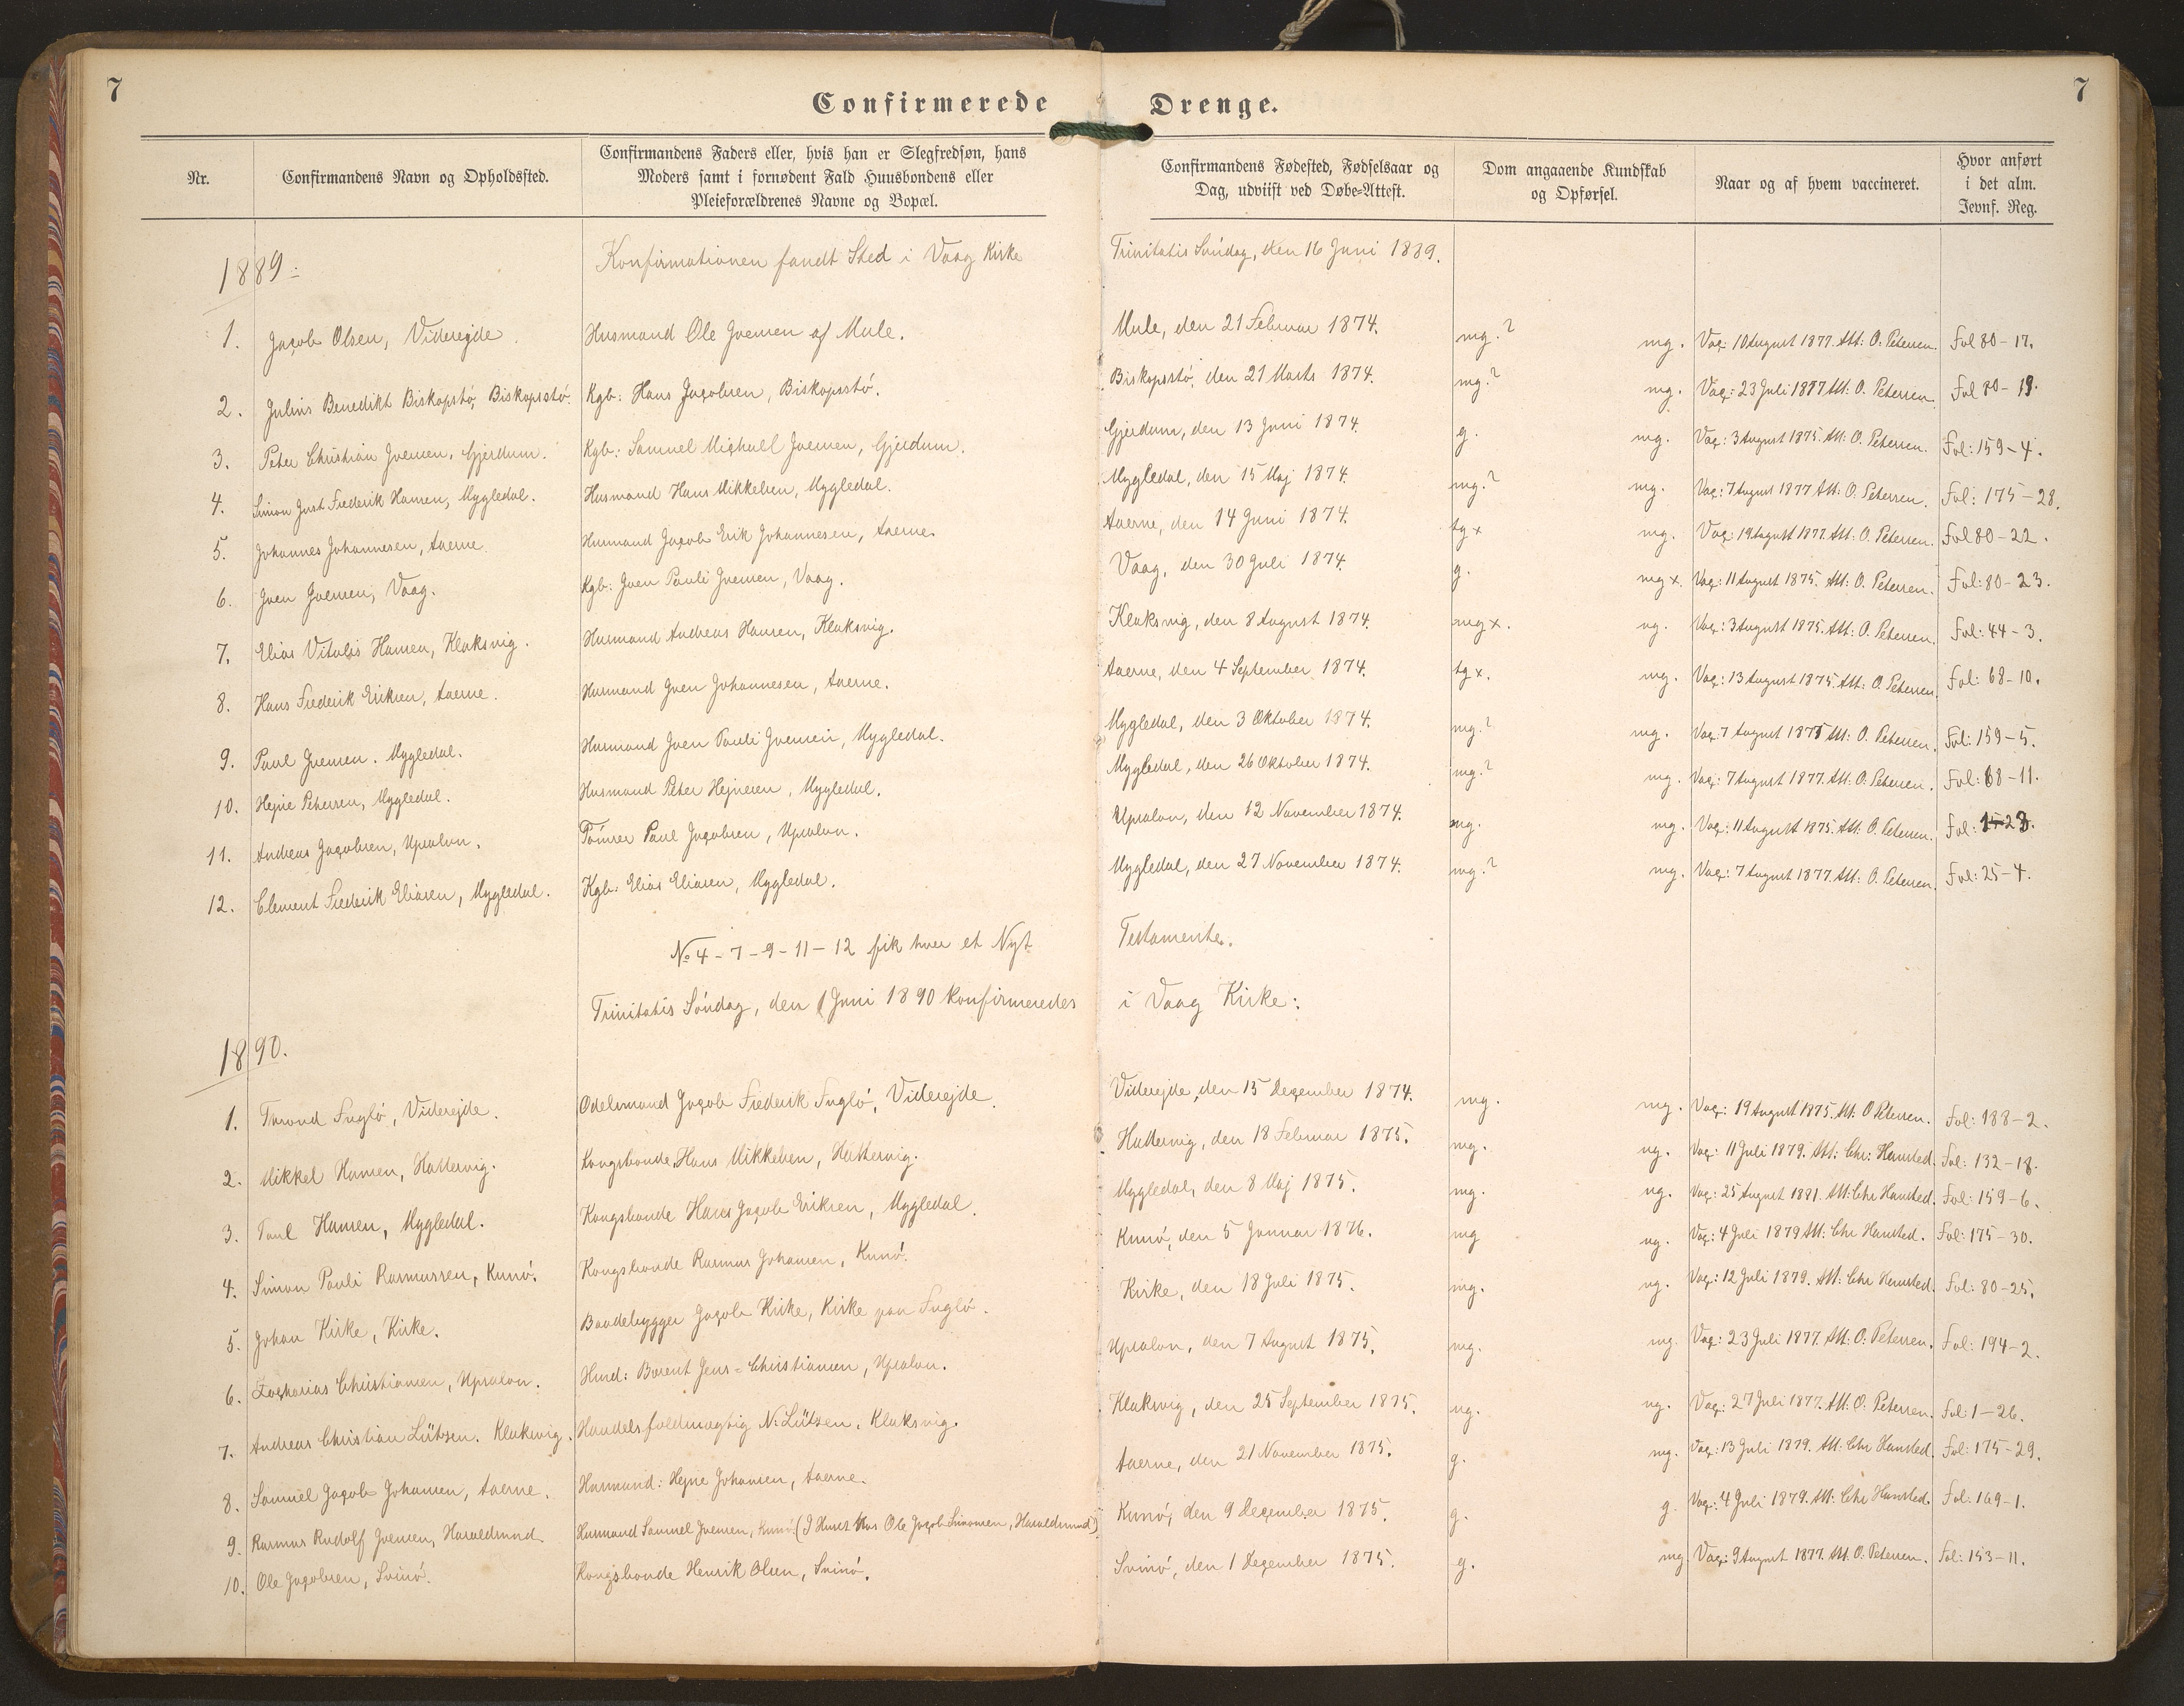 7
7
Confirmerede Drenge.
Nr.
Confirmandens Navn og Opholdssted.
Confirmandens Faders eller, hvis han er Slegfredsøn, hans
Moders samt i fornødent Fald Huusbondens eller
Pleieforældrenes Navne og Bopæl.
Confirmandens Fødested, Fødselsaar og
Dag, udviist ved Døbe-Attest.
Dom angaaende Kundskab
og Opførsel.
Naar og af hvem vaccineret.
Hvor anført
i det alm.
Jevnf. Reg.
1889: Konfirmationen fandt Sted i Vaag Kirke Trinitatis Søndag, den 16 Juni 1889.
1. Jacob Olsen, Viderejde. Husmand Ole Joensen af Mule. Mule, den 21 Februar 1874. mg.? mg. Vac: 10 August 1877. Att: O. Petersen. Fol 80-17.
2. Julius Benedikt Biskopstø, Biskopsstø. Kgb: Hans Jacobsen, Biskopsstø. Biskopsstø, den 21 Marts 1874. mg.? mg. Vac: 23 Juli 1877 Att: O. Petersen. Fol 80-19.
3. Peter Christian Joensen, Gjerdum. Kgb: Samuel Michael Joensen, Gjerdum. Gjerdum, den 13 Juni 1874. g. mg. Vac: 3 August 1875. Att: O. Petersen. Fol: 159-4.
4. Simon Just Frederik Hansen, Mygledal. Husmand Hans Mikkelsen, Mygledal. Mygledal, den 15 Maj 1874. mg.? mg. Vac: 7 August 1877 Att: O. Petersen. Fol: 175-28.
5. Johannes Johannesen, Aaerne. Husmand Jacob Erik Johannesen, Aaerne. Aaerne, den 14 Juni 1874. tg x mg. Vac: 19 August 1877. Att: O. Petersen. Fol 80-22.
6. Joen Joensen, Vaag. Kgb: Joen Pauli Joensen, Vaag. Vaag, den 30 Juli 1874. g. mg x. Vac: 11 August 1875. Att: O. Petersen. Fol: 80-23.
7. Elias Vitalis Hansen, Klaksvig. Husmand Andreas Hansen, Klaksvig. Klaksvig, den 8 August 1874. mg x. ug. Vac: 3 August 1875. Att: O. Petersen. Fol: 44-3.
8. Hans Frederik Eriksen, Aaerne. Husmand Joen Johannesen, Aaerne. Aaerne, den 4 September 1874. tg x. mg. Vac: 13 August 1875. Att: O. Petersen. Fol: 68-10.
9. Paul Joensen. Mygledal. Husmand Joen Pauli Joensen, Mygledal. Mygledal, den 3 Oktober 1874. mg.? mg. Vac: 7 August 1875 Att: O. Petersen. Fol: 159-5.
10. Hejne Petersen, Mygledal. Husmand Peter Hejnesen, Mygledal. Mygledal, den 26 Oktober 1874. mg.? mg. Vac: 7 August 1877. Att: O. Petersen. Fol: 68-11.
11. Andreas Jacobsen, Upsalon. Tømrer Paul Jacobsen, Upsalon. Upsalon, den 12 November 1874. mg. mg. Vac: 11 August 1875. Att: O. Petersen. Fol: 1-23.
12. Clement Frederik Eliasen, Mygledal. Kgb: Elias Eliasen, Mygledal. Mygledal, den 27 November 1874. mg.? mg. Vac: 7 August 1877. Att: O. Petersen. Fol: 25-4.
No 4-7-9-11-12 fik hver et Nyt Testamente.
Trinitatis Søndag, den 1 Juni 1890 konfirmeredes i Vaag Kirke:
1890.
1. Throndt Fuglø, Viderejde. Odelsmand Jacob Frederik Fuglø, Viderejde. Viderejde, den 15 December 1874. mg. mg. Vac: 19 August 1875. Att: O Petersen. Fol: 188-2.
2. Mikkel Hansen, Hattervig. Kongsbonde Hans Mikkelsen, Hattervig. Hattervig, den 18 Februar 1875. mg. ug. Vac: 11 Juli 1879. Att: Chr: Hansted. Fol: 132-18.
3. Poul Hansen, Mygledal. Kongsbonde Hans Jacob Eriksen, Mygledal. Mygledal, den 8 Maj 1875. mg. ug. Vac: 25 August 1881. Att: Chr Hansted. Fol: 159-6.
4. Simon Pauli Rasmussen, Kunø. Kongsbonde Rasmus Johansen, Kunø. Kunø, den 5 Januar 1876. mg ug. Vac: 4 Juli 1879 Att: Chr Hansted. Fol: 175-30.
5. Johan Kirke, Kirke. Baadebygger Jacob Kirke, Kirke paa Fuglø. Kirke, den 18 Juli 1875. mg. ug. Vac: 12 Juli 1879. Att: Chr Hansted. Fol: 80-25.
6. Zacharias Christiansen, Upsalon. Hmd: Barent Jens-Christiansen, Upsalon. Upsalon, den 7 August 1875. mg. mg. Vac: 23 Juli 1877. Att: O. Petersen. Fol: 194-2.
7. Andreas Christian Lützen. Klaksvig. Handelsfuldmægtig N. Lützen, Klaksvig. Klaksvig, den 25 September 1875. ug. ug. Vac: 27 Juli 1877. Att: O. Petersen. Fol: 1-26.
8. Samuel Jacob Johansen, Aaerne. Husmand: Hejne Johansen, Aaerne. Aaerne, den 21 November 1875. g. mg. Vac: 13 Juli 1879. Att: Chr Hansted. Fol: 175-29.
9. Rasmus Rudolf Joensen, Haraldsund. Husmand Samuel Joensen, Kunø. (I Huset hos Ole Jacob Simonsen, Haraldsund) Kunø, den 9 December 1875. g. g. Vac: 4 Juli 1879. Att: Chr Hansted. Fol: 169-1.
10. Ole Jacobsen, Svinø. Kongsbonde Henrik Olsen, Svinø. Svinø, den 1 December 1875. g. mg. Vac: 9 August 1877. Att. O. Petersen. Fol: 153-11.